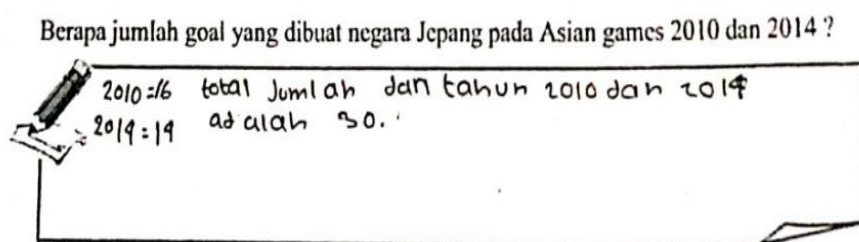 Berapa jumlah goal yang dibuat negara Jepang pada Asian games 2010 dan 2014 ?
2010=16 total Jumlah dan tahun 2010 dan 2014
2014=14 adalah 30.